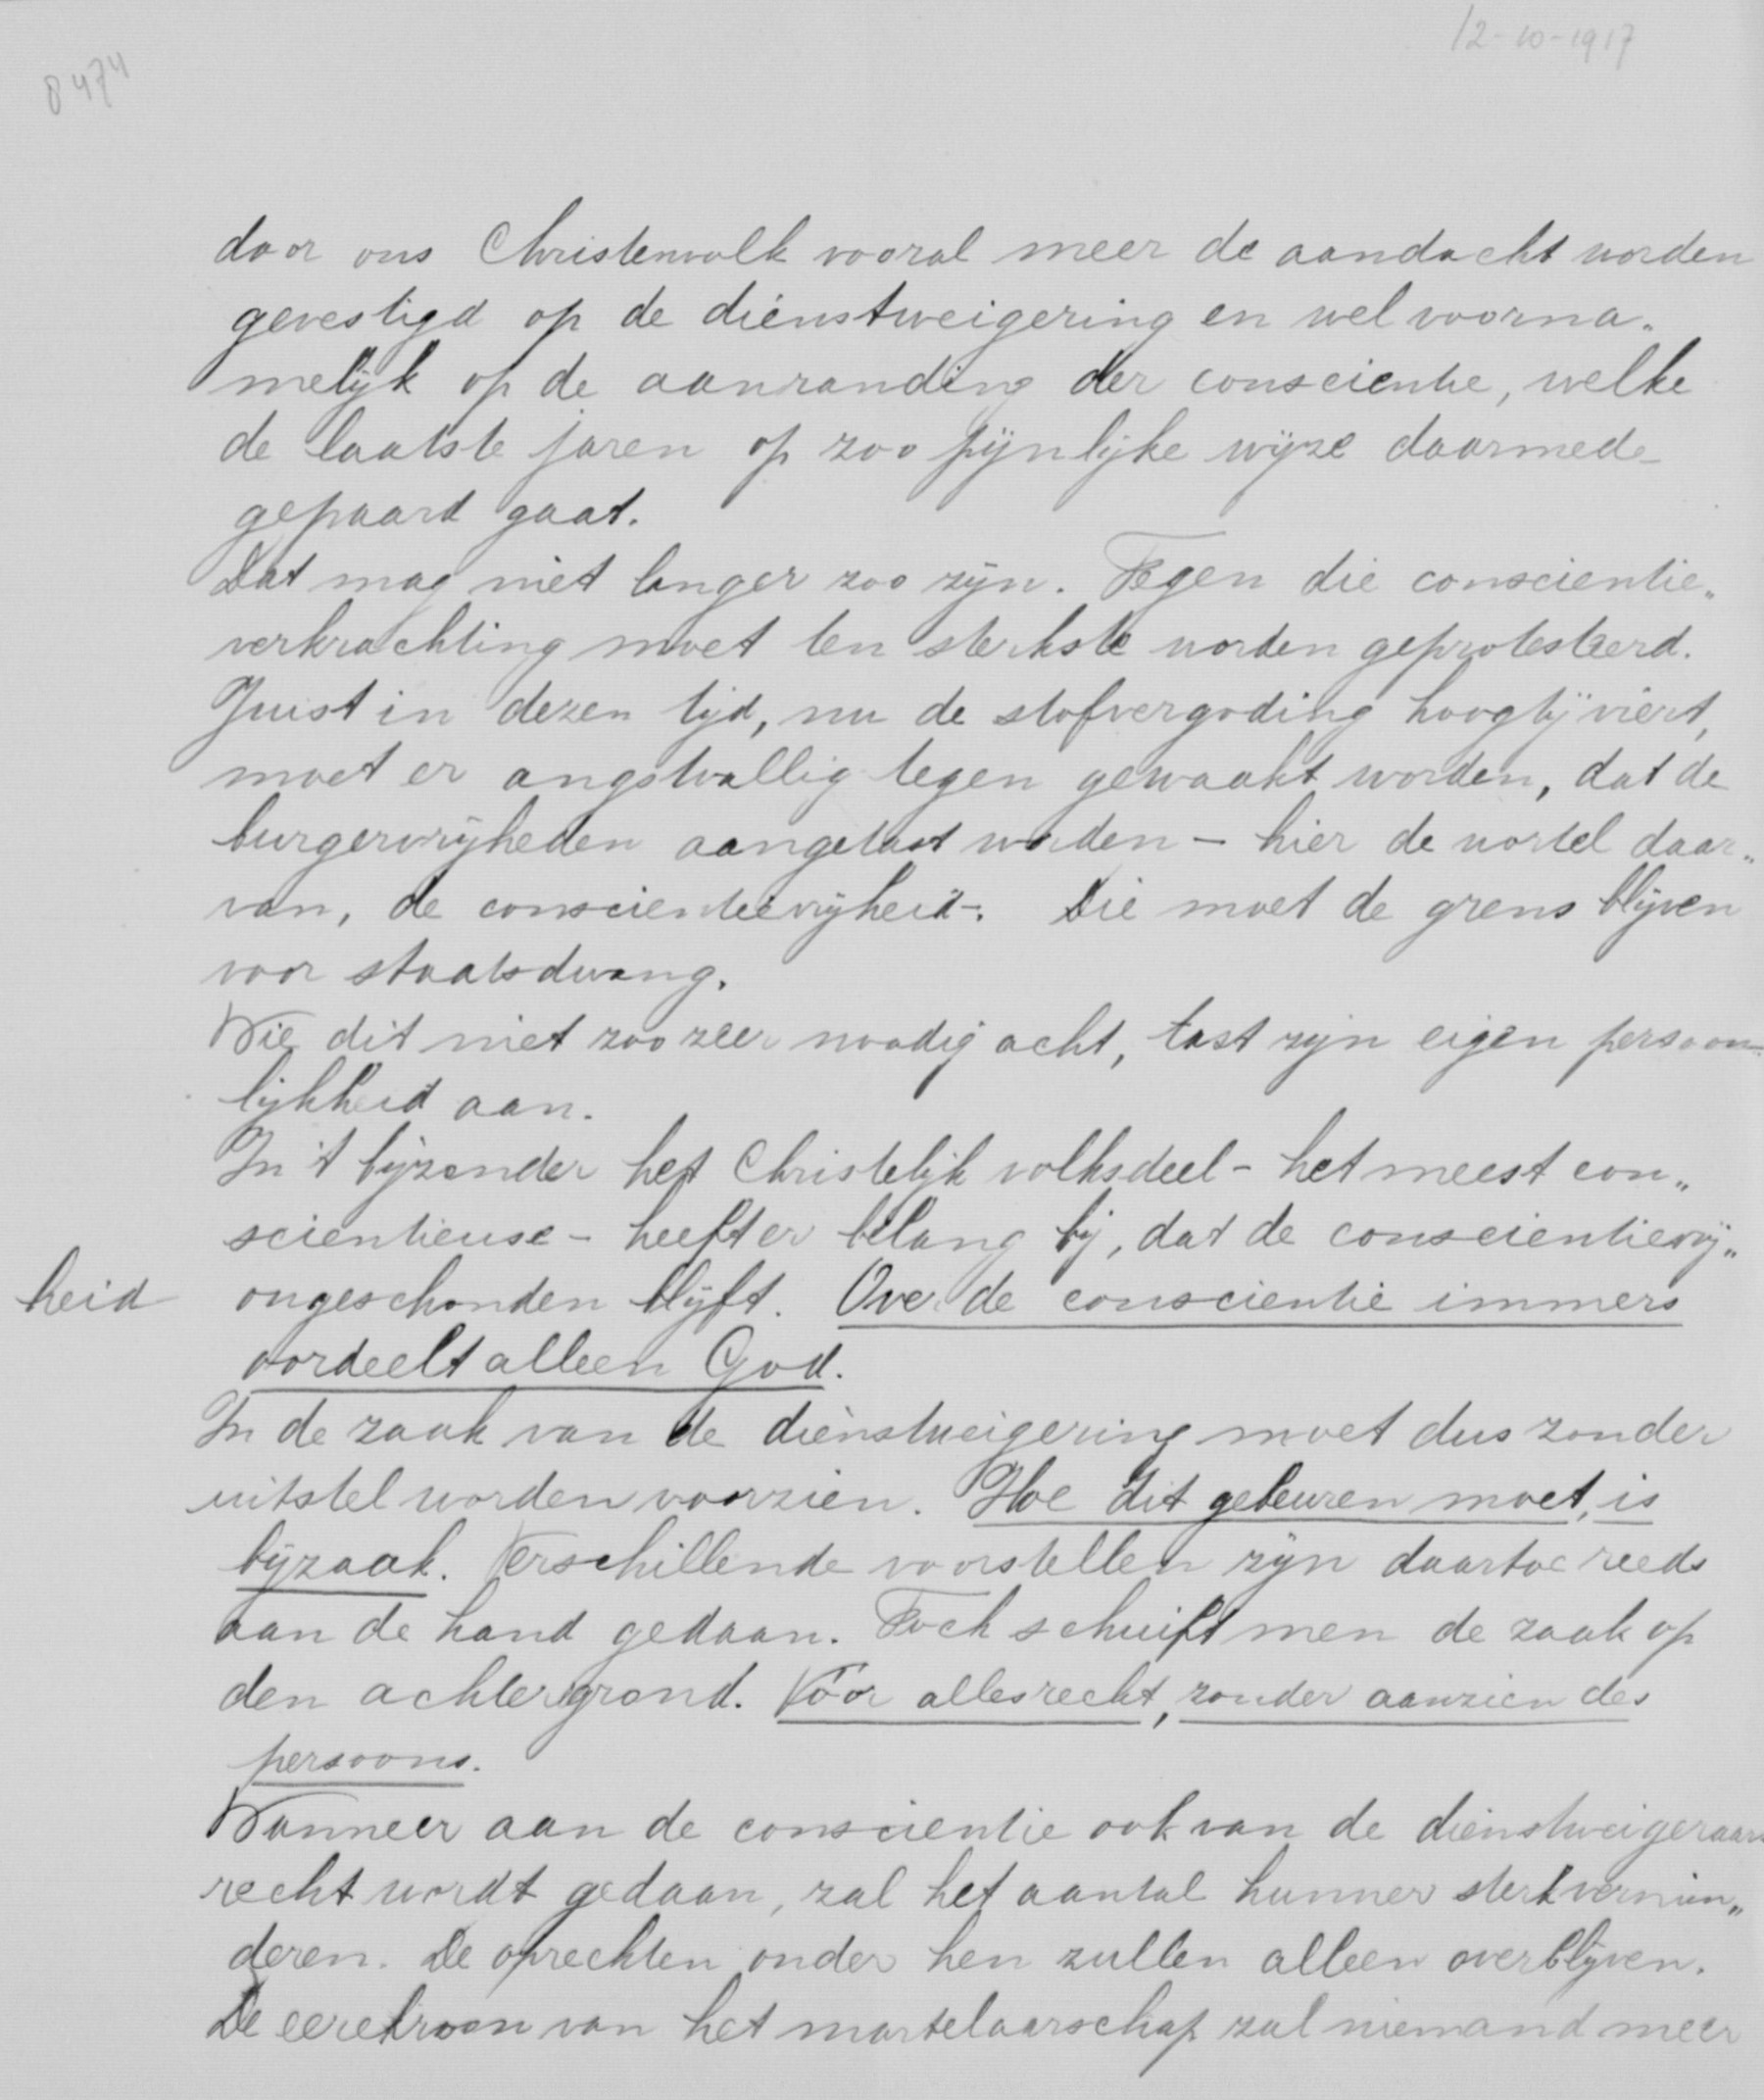 12-10-1917
8474
door ons Christenvolk vooral meer de aandacht worden
gevestigd op de dienstweigering en wel voorna„
melijk op de aanranding der conscientie, welke
de laatste jaren op zoo pijnlijke wijze daarmede
gepaard gaat.
Dat mag niet langer zoo zijn. Tegen die conscientie„
verkrachting moet ten sterkste worden geprotesteerd.
Juist in dezen tijd, nu de stofvergoding hoogtij viert,
moet er angstvallig tegen gewaakt worden, dat de
burgervrijheden aangetast worden – hier de wortel daar„
van, de conscientievrijheid –. Die moet de grens blijven
voor staatsdwang.
Wie dit niet zoo zeer noodig acht, tast zijn eigen persoon-
lijkheid aan.
In 't bijzonder het Christelijk volksdeel – het meest con„
scientieuse – heeft er belang bij, dat de conscientievrij„
heid ongeschonden blijft. Over de conscientie immers
oordeelt alleen God.
In de zaak van de dienstweigering moet dus zonder
uitstel worden voorzien. Hoe dit gebeuren moet, is
bijzaak. Verschillende voorstellen zijn daartoe reeds
aan de hand gedaan. Toch schuift men de zaak op
den achtergrond. Vóór alles recht, zonder aanzien des
persoons.
Wanneer aan de conscientie ook van de dienstweigeraars
recht wordt gedaan, zal het aantal hunner sterk vermin„
deren. De oprechten onder hen zullen alleen overblijven.
De eerekroon van het martelaarschap zal niemand meer